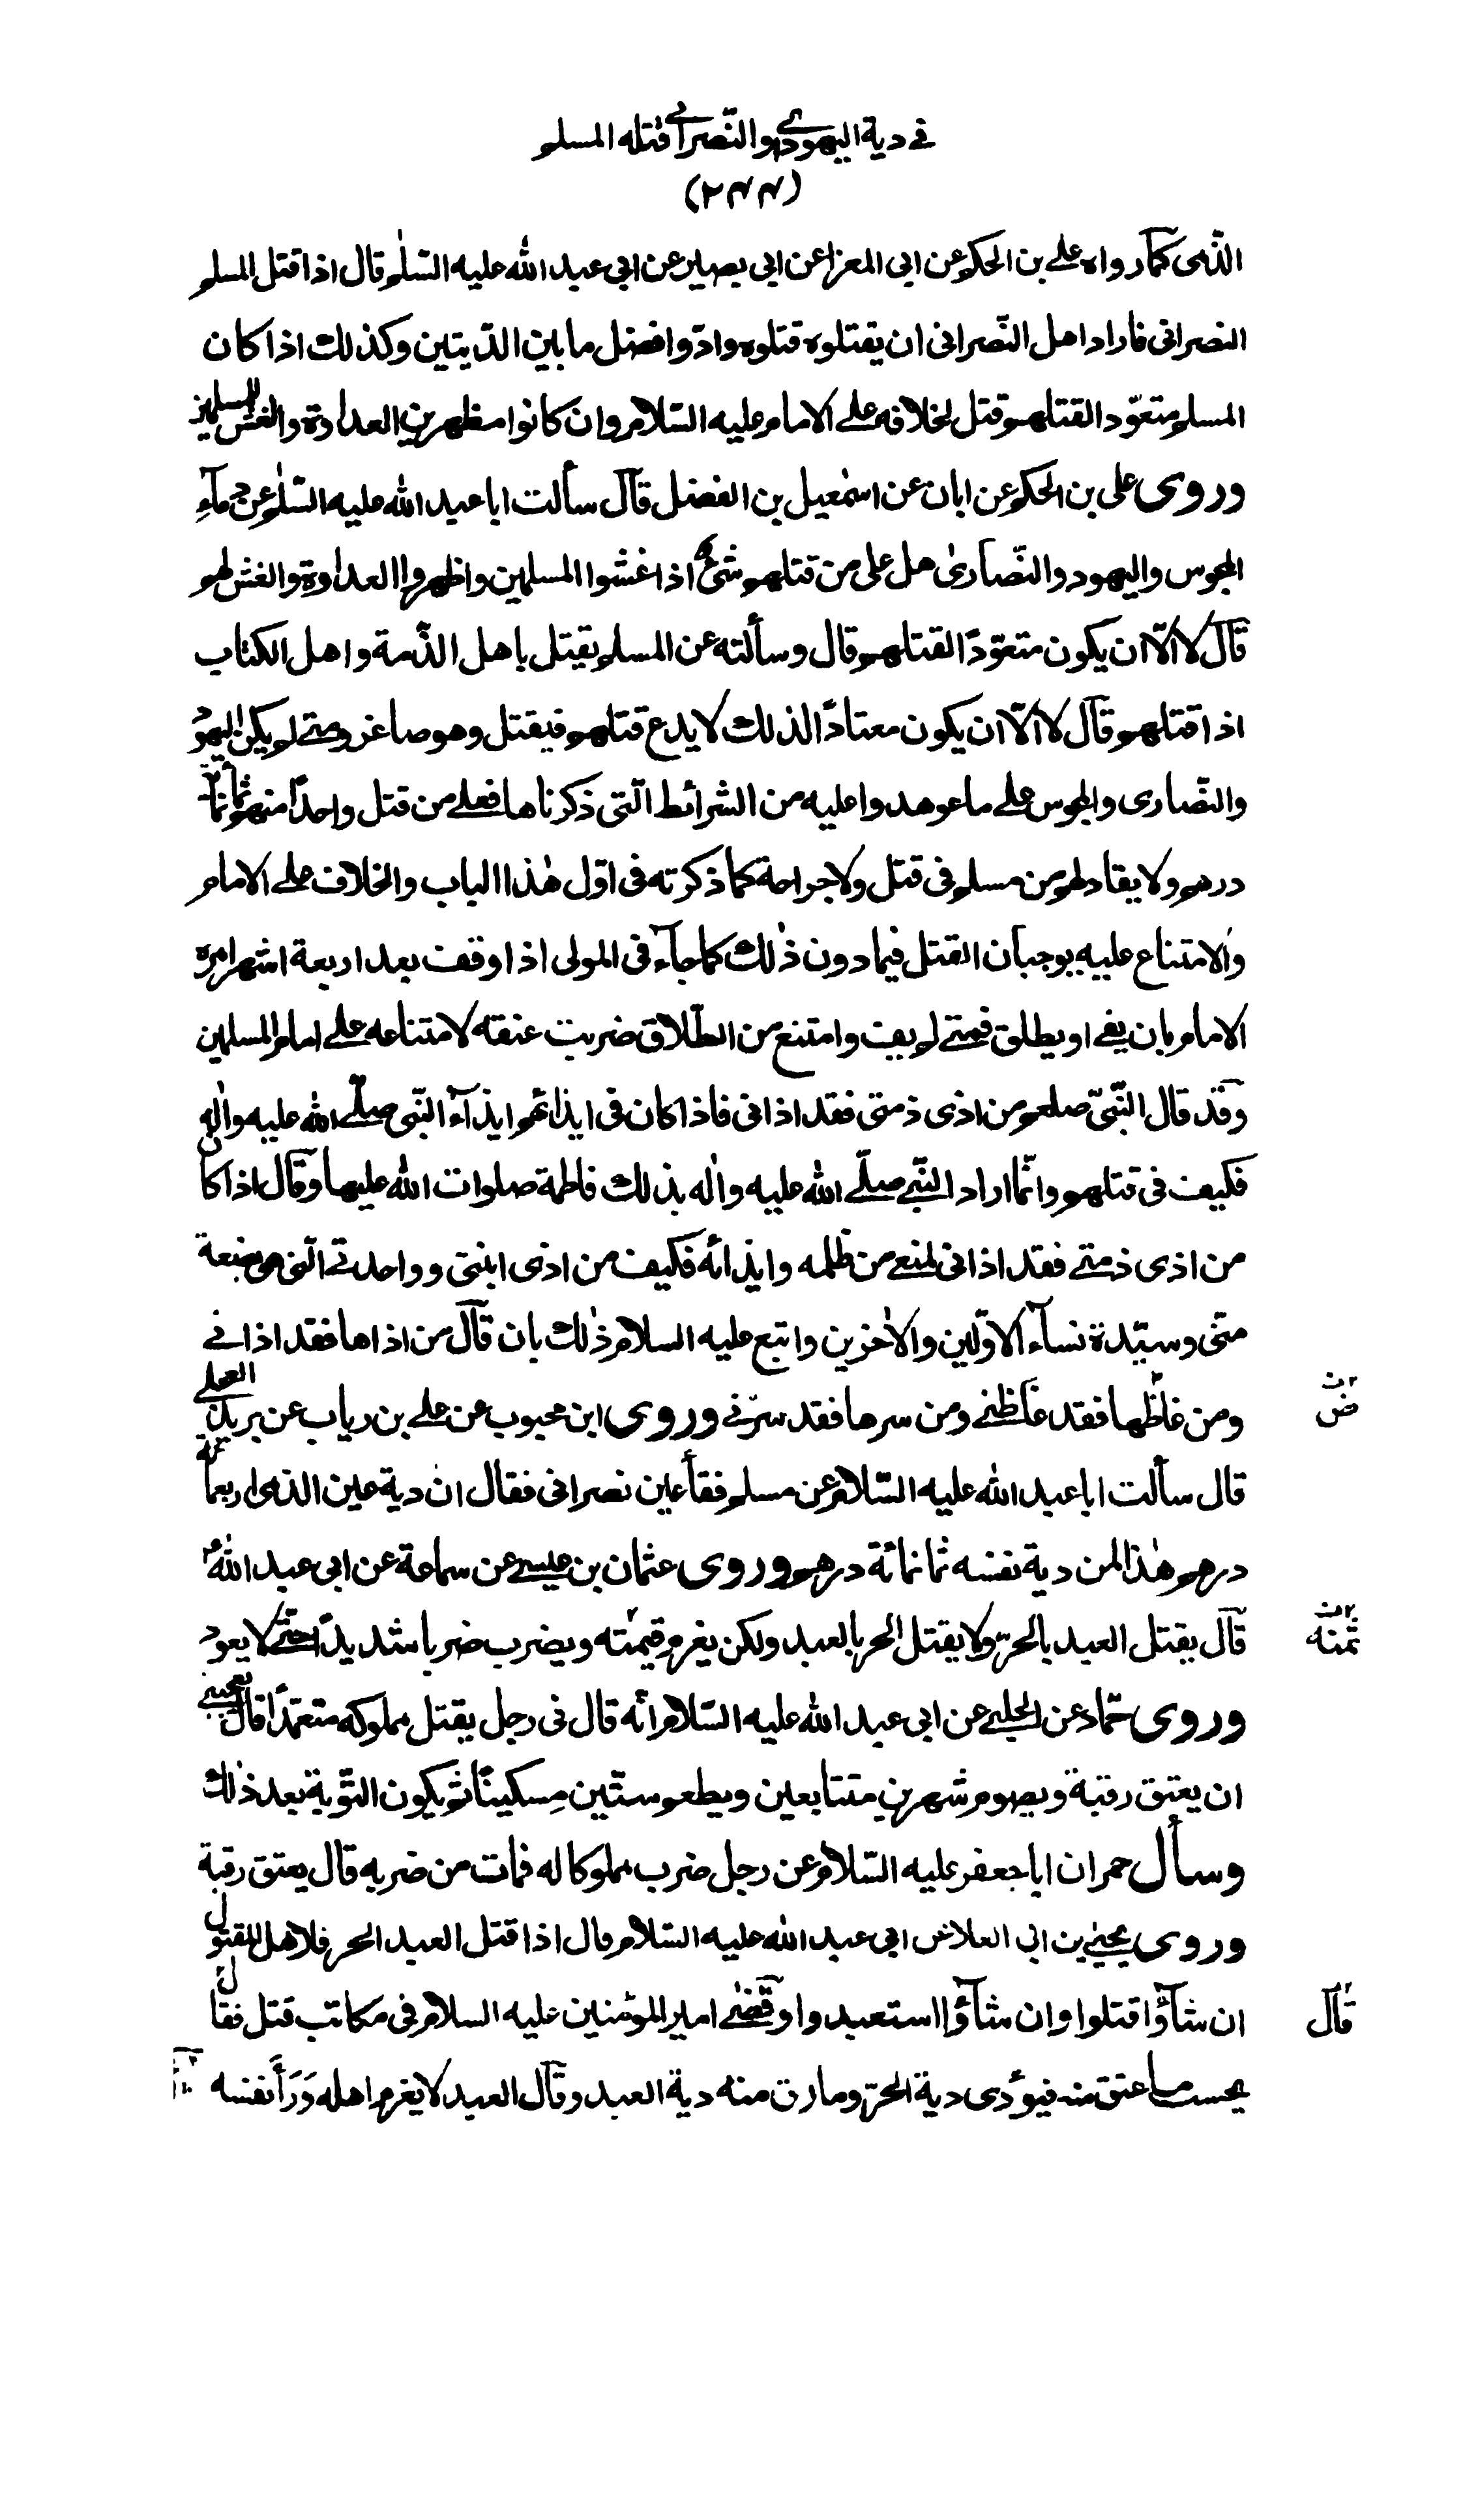 في دية اليهودي والنصراني قتله المسلم
(٢٤٤)
الذمى كما رواه على بن الحكم عن ابى المعزا عن ابى بصير عن ابى عبد الله عليه السلٰم قال اذا قتل المسلم
النصرانى فاراد اهل النّصرانى ان يقتلوه قتلوه وادّوا فضل ما بين الدّيتين وكذلك اذا كان
المسلم متعوّد القتلهم قتل لخلافه على الامام عليه السّلام وان كانوا مظهرين العداوة والغش للمسلمين
وروى على بن الحكم عن ابان عن اسمٰعيل بن الفضل قال سألت ابا عبد الله عليه السّلٰم عن دمآءِ
المجوس واليهود والنّصارىٰ هل على من قتلهم شئ اذا غشوا المسلمين واظهروا العداوة والغش لهم
قال لا الّا ان يكون متعوّدًا لقتلهم قال وسألته عن المسلم يقتل باهل الذّمة واهل الكتاب
اذا قتلهم قال لا الّا ان يكون معتادًا لذلك لا يدع قتلهم فيقتل وهو صاغر ومتى لم يكن اليهود
والنّصارى والمجوس على ما عوهدوا عليه من الشرائط الّتى ذكرناها فعلى من قتل واحدًا منهم ثمانمائة
درهم ولا يقاد لهم من مسلم فى قتل ولا جراحة كما ذكرته فى اوّل هٰذا الباب والخلاف على الامام
والامتناع عليه يوجبان القتل فيما دون ذٰلك كما جآء فى المولى اذا وقف بعد اربعة اشهر امره
الامام بان يفى او يطلق فمتى لم يف وامتنع من الطّلاق ضربت عنقه لامتناعه على امام المسلمين
وقد قال النّبىّ صلعم من اذى ذمتى فقد اذانى فاذا كان فى ايذائهم ايذآء النّبى صلّى الله عليه واٰله
فكيف فى قتلهم وانّما اراد النّبى صلّى الله عليه واٰله بذلك فاطمة صلوات الله عليها وقال اذا كان
من اذى ذمتى فقد اذانى لمنعى من ظلمه وايذائه فكيف من اذى ابنتى وواحدتى الّتى هى بضعة
منّى وسيّدة نسآء الاوّلين والاٰخرين واتبع عليه السلام ذٰلك بان قال من اذاها فقد اذانى
ومن غاظها فقد غاظنى ومن سرها فقد سرّنى وروى ابن محبوب عن على بن رياب عن بريد العجلى
قال سألت ابا عبد الله عليه السّلام عن مسلم فقأ عين نصرانى فقال ان دية عين الذمى اربعمائة
درهم هٰذا لمن دية نفسه ثمانمائة درهم وروى عثمان بن عيسى عن سماعة عن ابى عبد الله ؑ
قال يقتل العبد بالحرّ ولا يقتل الحر بالعبد ولكن يغرم قيمته ويضرب ضربا شديدًا حتى لا يعود
وروى حمّاد عن الحلبى عن ابى عبد الله عليه السّلام انّه قال فى رجل يقتل مملوكه متعمّدًا قال يعجبنى
ان يعتق رقبة ويصوم شهرين متتابعين ويطعم ستّين مِسكينًا ثم يكون التّوبة بعد ذٰلك
وسأل حمران ابا جعفر عليه السّلام عن رجل ضرب مملوكا له فمات من ضربه قال يعتق رقبة
وروى يحيىٰ بن ابى العلا عن ابى عبد الله عليه السّلام قال اذا قتل العبد الحر فلاهل المقتول
ان شآؤا قتلوا وان شآؤا استعبدوا وقضٰى امير المؤمنين عليه السلام فى مكاتب قتل فقال
يحسب ما عتق منه فيؤدى دية الحرّ ومارق منه دية العبد وقال العبد لا يغرم اهله وَرَأَ نفسه
ض
ثمنه
قال